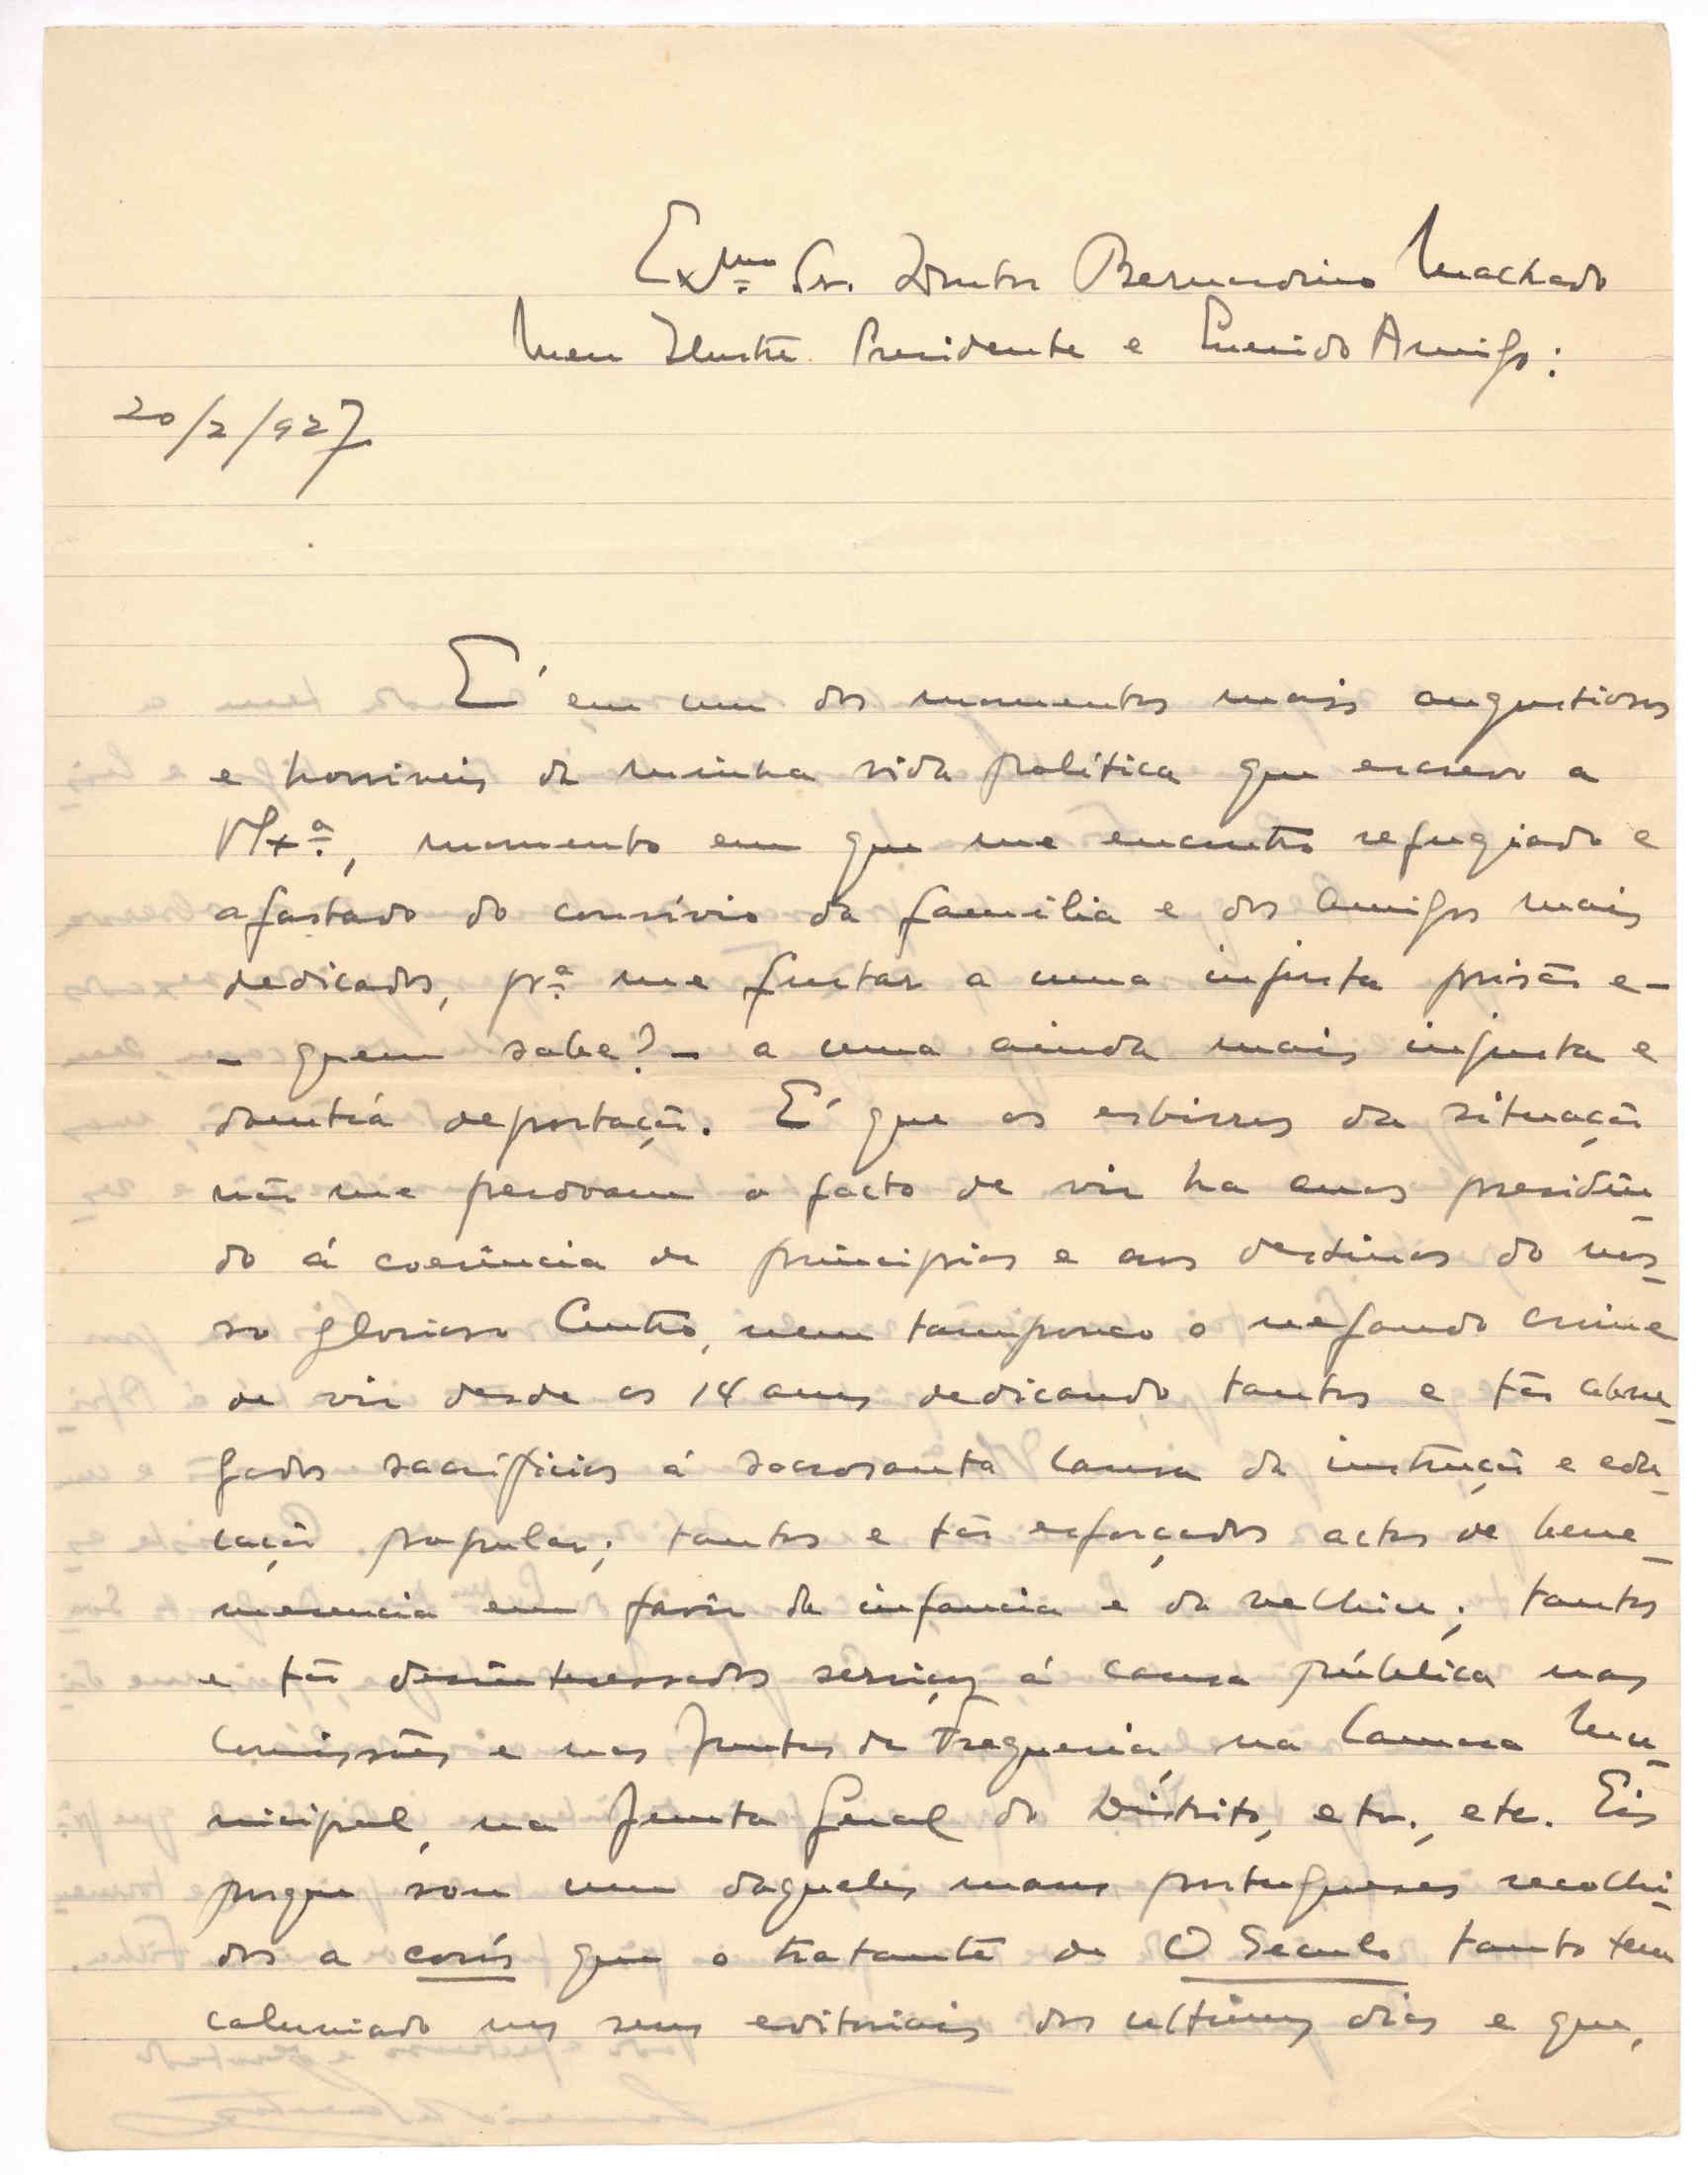 Exmo. Sr. Doutor Bernardino Machado
Meu Ilustre Presidente e Querido Amigo:
20/2/927
E' em um dos momentos mais angustiosos
e horriveis da minha vida política que escrevo a
V. Exª., momento em que me encontro refugiado e
afastado do convívio da família e dos amigos mais
dedicados, prª. me furtar a uma injusta prisão e-
- quem sabe? - a uma ainda mais injusta e
deportação. E' que os esbirros da situação
não me perdoam o facto de vir ha anos presidin-
do á coerência de principios e aos destinos do nos-
so glorioso Centro, nem tampouco o nefando crime
de vir desde os 14 anos dedicando tantos e tão abne-
gados sacrifícios á sacrosanta causa da instrução e edu-
cação popular; tantos e tão esforçados actos de bene-
merencia em favôr da infancia e da velhice; tantos
e tão desinteressados serviços á causa pública nas
Comissões e nas Juntas de Freguesia, na Camara Mu-
nicipal, na Junta Geral do Distrito, etc., etc. Eis
porque sou um daqueles maus portugueses recolhi-
dos a que o tratante de O Seculo tanto tem
caluniado nos seus editoriais dos ultimos dias e que,